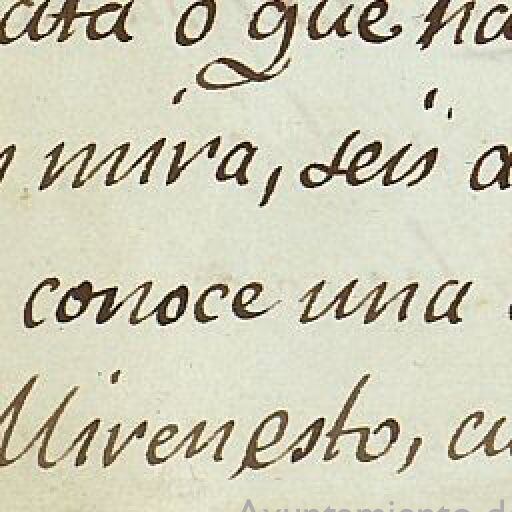 ata o que ha
mira, seis a
conoce una
Miren esto, cu
Ayuntamiento de